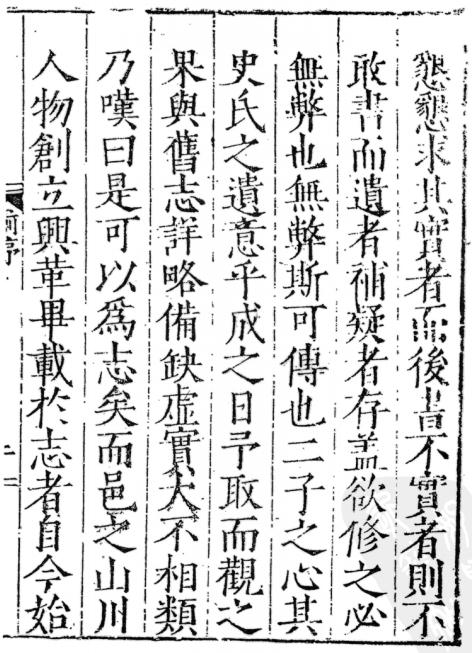 懇懇求其實者而後書不實者則不
敢書而遺者補疑者存盖欲修之必
無弊也無弊斯可傳也二子之心其
史氏之遺意乎成之日予取而觀之
果與舊志詳略備缺虛實大不相類
乃嘆曰是可以爲志矣而邑之山川
人物創立興革畢載於志者自今始